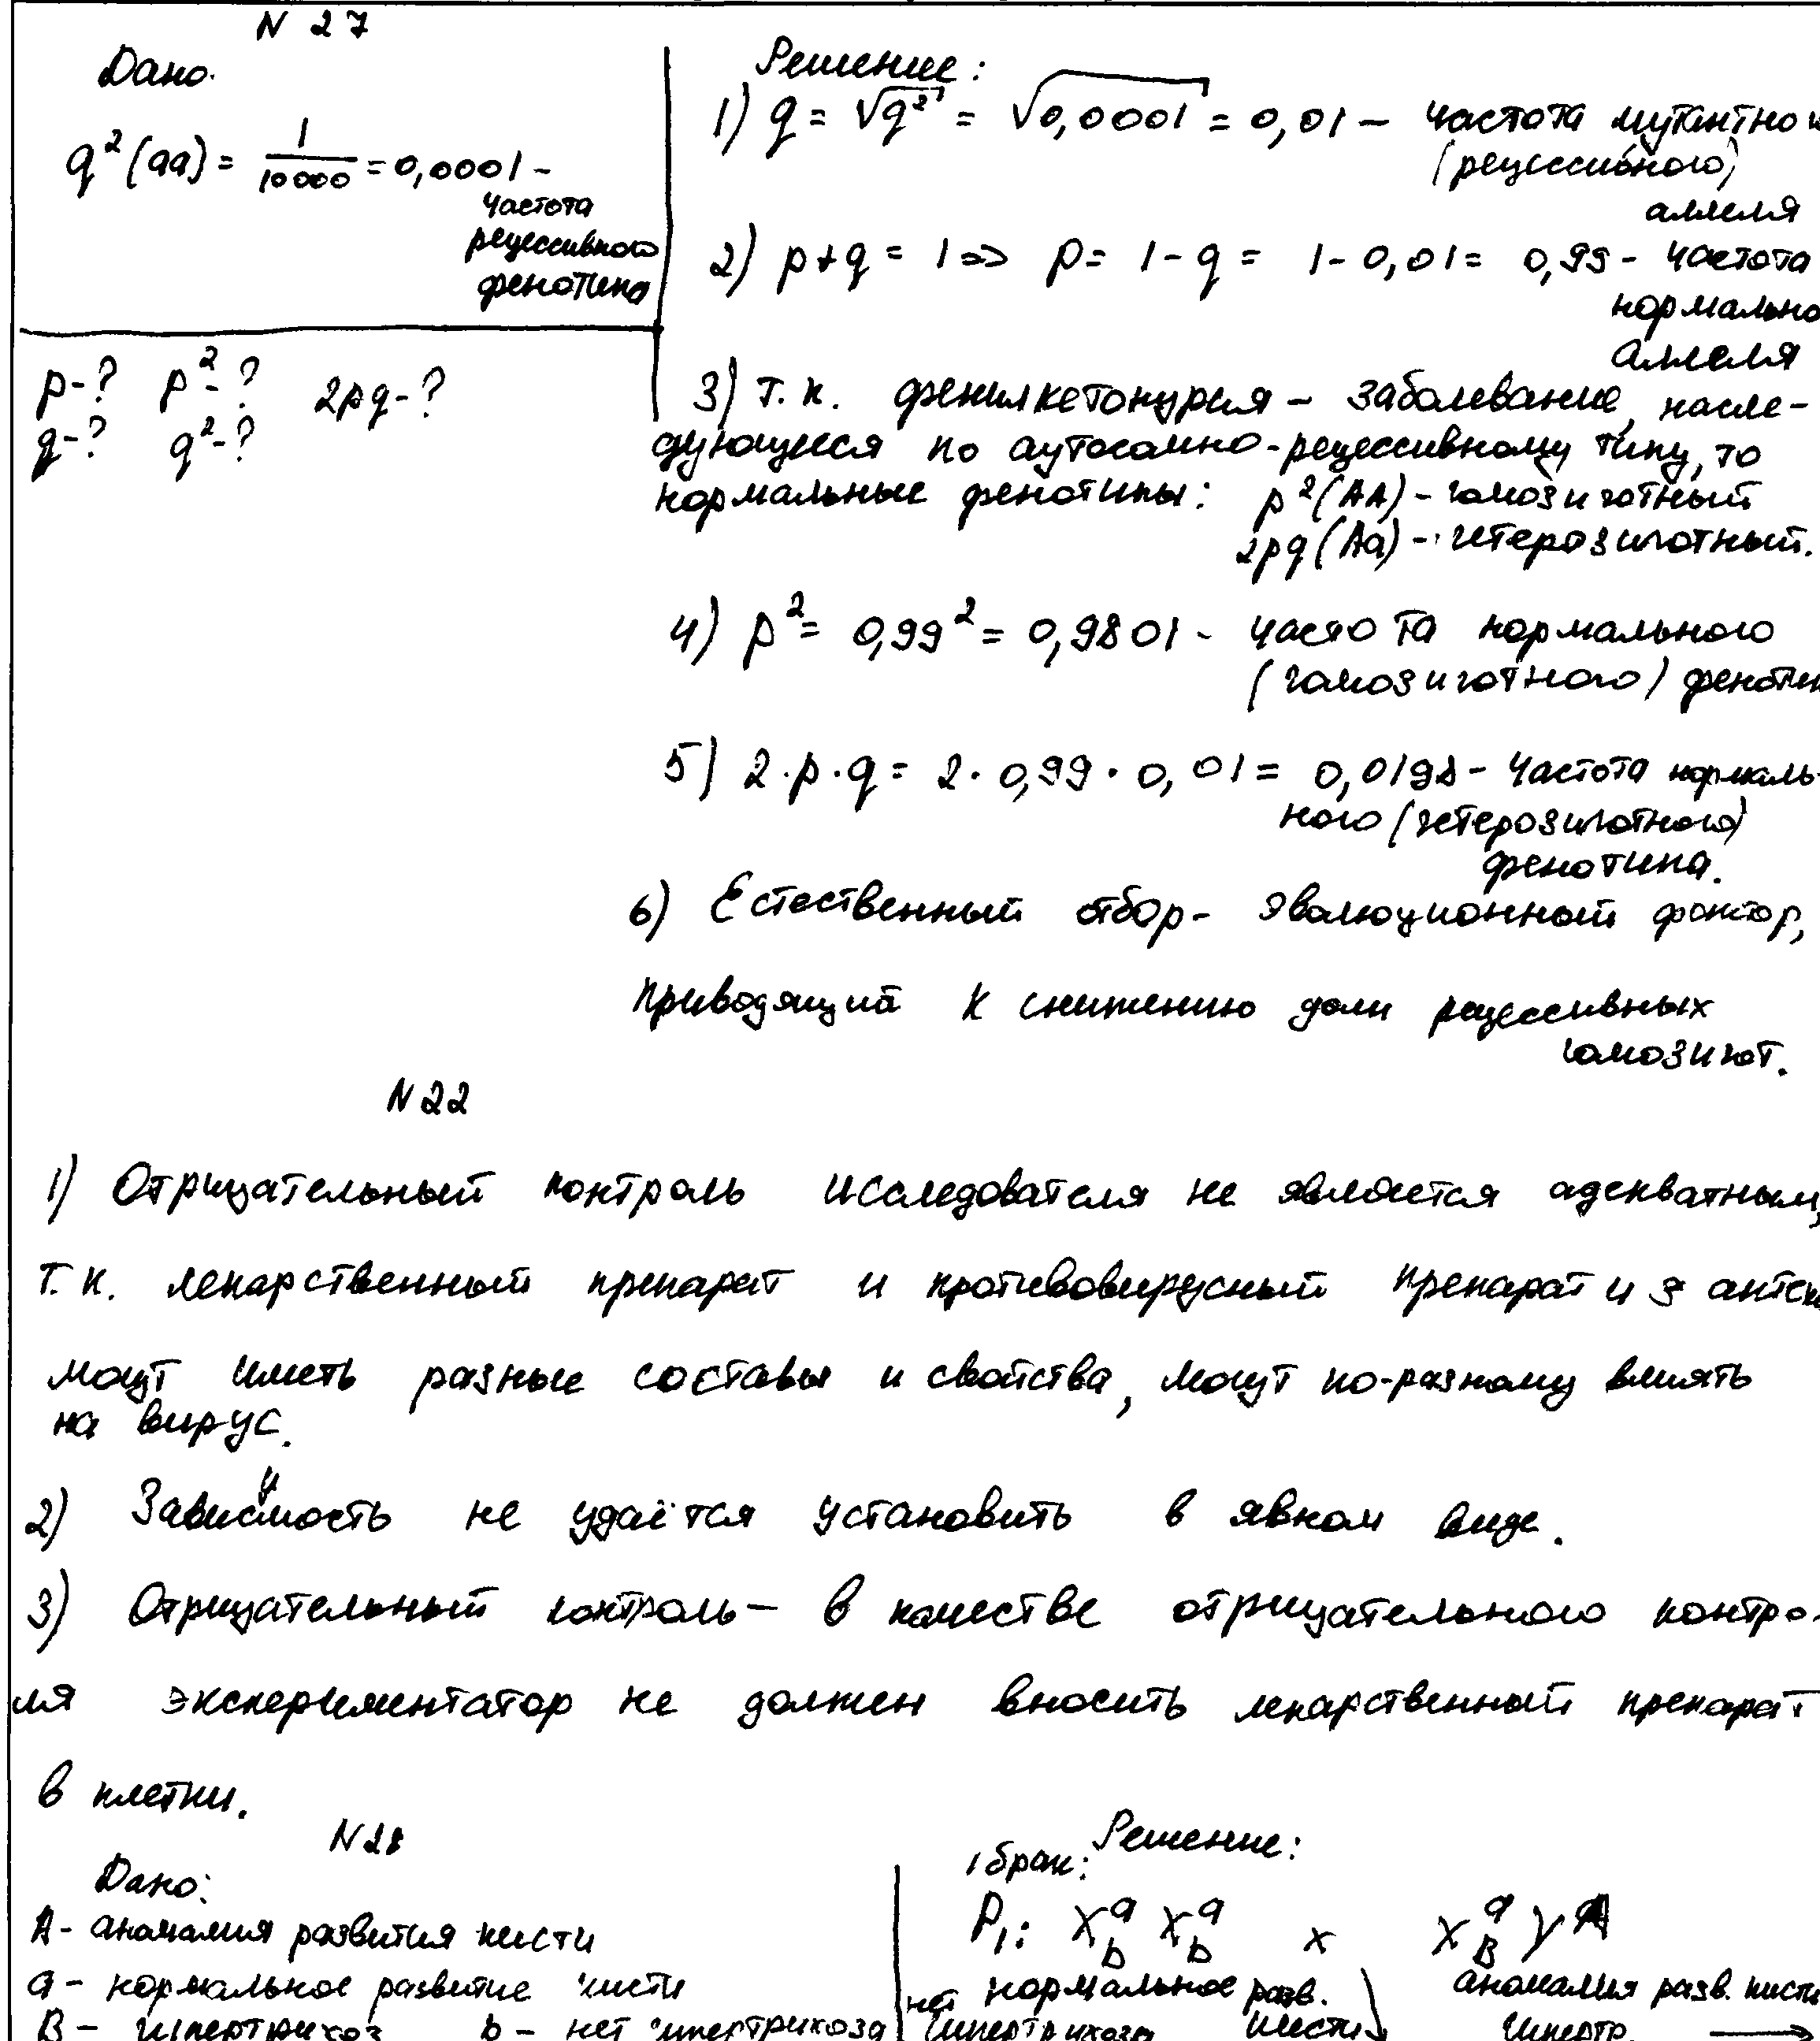 N 27
Дано.
q²(aa) = 1/10000 = 0,0001 -
частота
рецессивного
фенотипа
p-? p²-? 2pq-?
q-? q²-?
Решение:
1) q = √q² = √0,0001 = 0,01 - частота мутантно
(рецессивного)
аллеля
2) p+q = 1 => p = 1-q = 1-0,01 = 0,99 - частота
нормально
аллеля
3) Т.к. фенилкетонурия - заболевание, насле-
дующееся по аутосомно-рецессивному типу, то
нормальные фенотипы: p²(AA) - гомозиготный
2pq(Aa) - гетерозиготный.
4) p² = 0,99² = 0,9801 - частота нормального
(гомозиготного) феноти
5) 2·p·q = 2·0,99·0,01 = 0,0198 - частота нормаль-
ного (гетерозиготного)
фенотипа.
6) Естественный отбор - эволюционный фактор,
приводящий к снижению доли рецессивных
гомозигот.
N 22
1) Отрицательный контроль исследователя не является адекватным,
т.к. лекарственный препарат и противовирусный препарат из аптек
могут иметь разные составы и свойства, могут по-разному влиять
на вирус.
2) Зависимость не удаётся установить в явном виде.
3) Отрицательный контроль - в качестве отрицательного контро-
ля экспериментатор не должен вносить лекарственный препарат
в клетки.
N 28
Дано:
A - аномалия развития кисти
a - нормальное развитие кисти
B - гипертрихоз b - нет гипертрихоза
Решение:
1 брак:
P₁: XᵃbXᵃb x XᵃBYᴬ
нормальное разв. аномалия разв. кисти
нет гипертрихоза кисти гипертр.